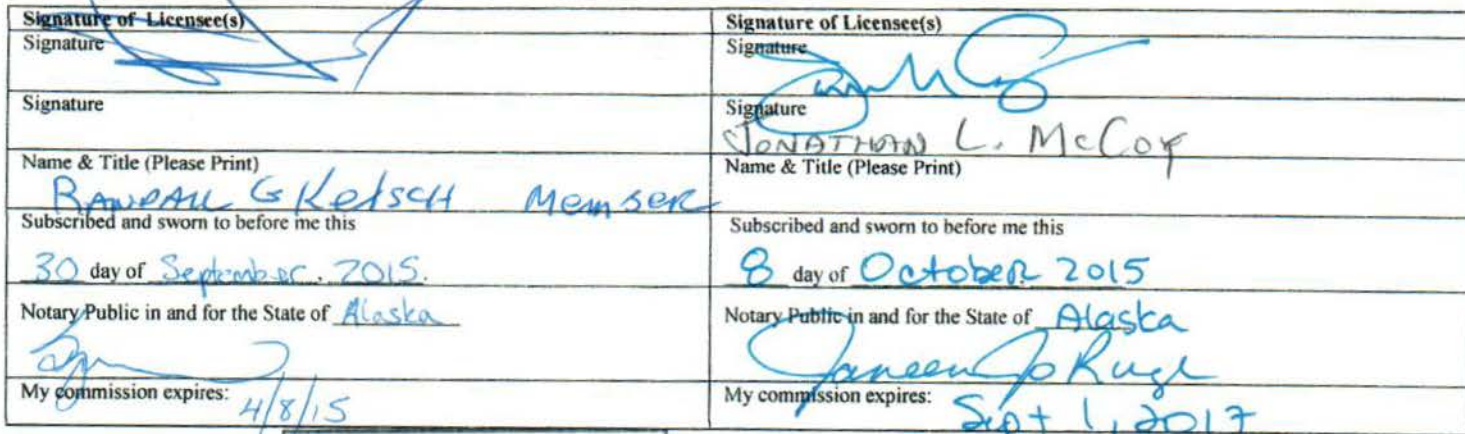 Signature of Licensee(s)
Signature
Signature
Name & Title (Please Print)
RANDALL G Ketsch Member
Subscribed and sworn to before me this
30 day of September, 2015.
Notary Public in and for the State of Alaska
My commission expires: 4/8/15
Signature of Licensee(s)
Signature
Signature
JONATHAN L. McCoy
Name & Title (Please Print)
Subscribed and sworn to before me this
8 day of October 2015
Notary Public in and for the State of Alaska
My commission expires: Sept 1, 2017